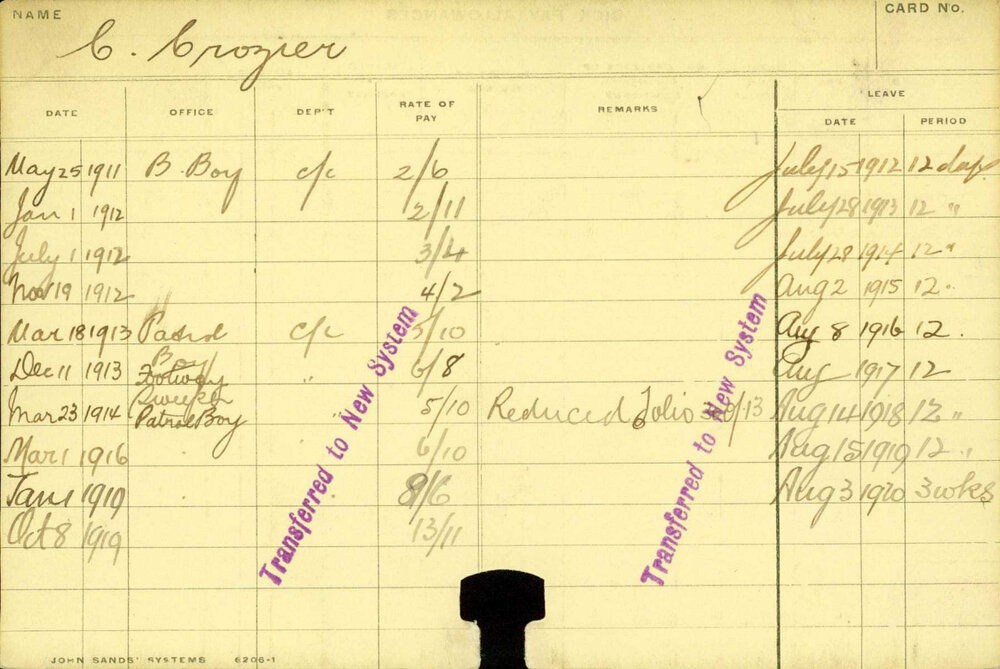 NAME
CARD No.
C. Crozier
DATE OFFICE DEP'T RATE OF PAY REMARKS LEAVE
DATE PERIOD
May 25 1911 B. Boy c/c 2/6 July 15 1912 12 days
Jan 1 1912 2/11 July 28 1913 12 "
July 1 1912 3/4 July 28 1914 12 "
Nov 19 1912 4/2 Aug 2 1915 12 "
Mar 18 1913 Patrol Boy c/c 5/10 Aug 8 1916 12 .
Dec 11 1913 Footway Sweeper " 6/8 Aug 1917 12
Mar 23 1914 Patrol Boy " 5/10 Reduced Folio /13 Aug 14 1918 12 "
Mar 1 1916 6/10 Aug 15 1919 12 "
Jan 1 1919 8/6 Aug 3 1920 3 wks
Oct 8 1919 13/11
Transferred to New System
Transferred to New System
JOHN SANDS' SYSTEMS 6206-1